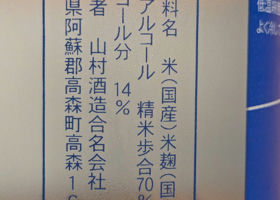 料名 米(国産)米麹(国
アルコール 精米歩合70%
コール分 14%
者 山村酒造合名会社
県阿蘇郡高森町高森16
低温
よく冷